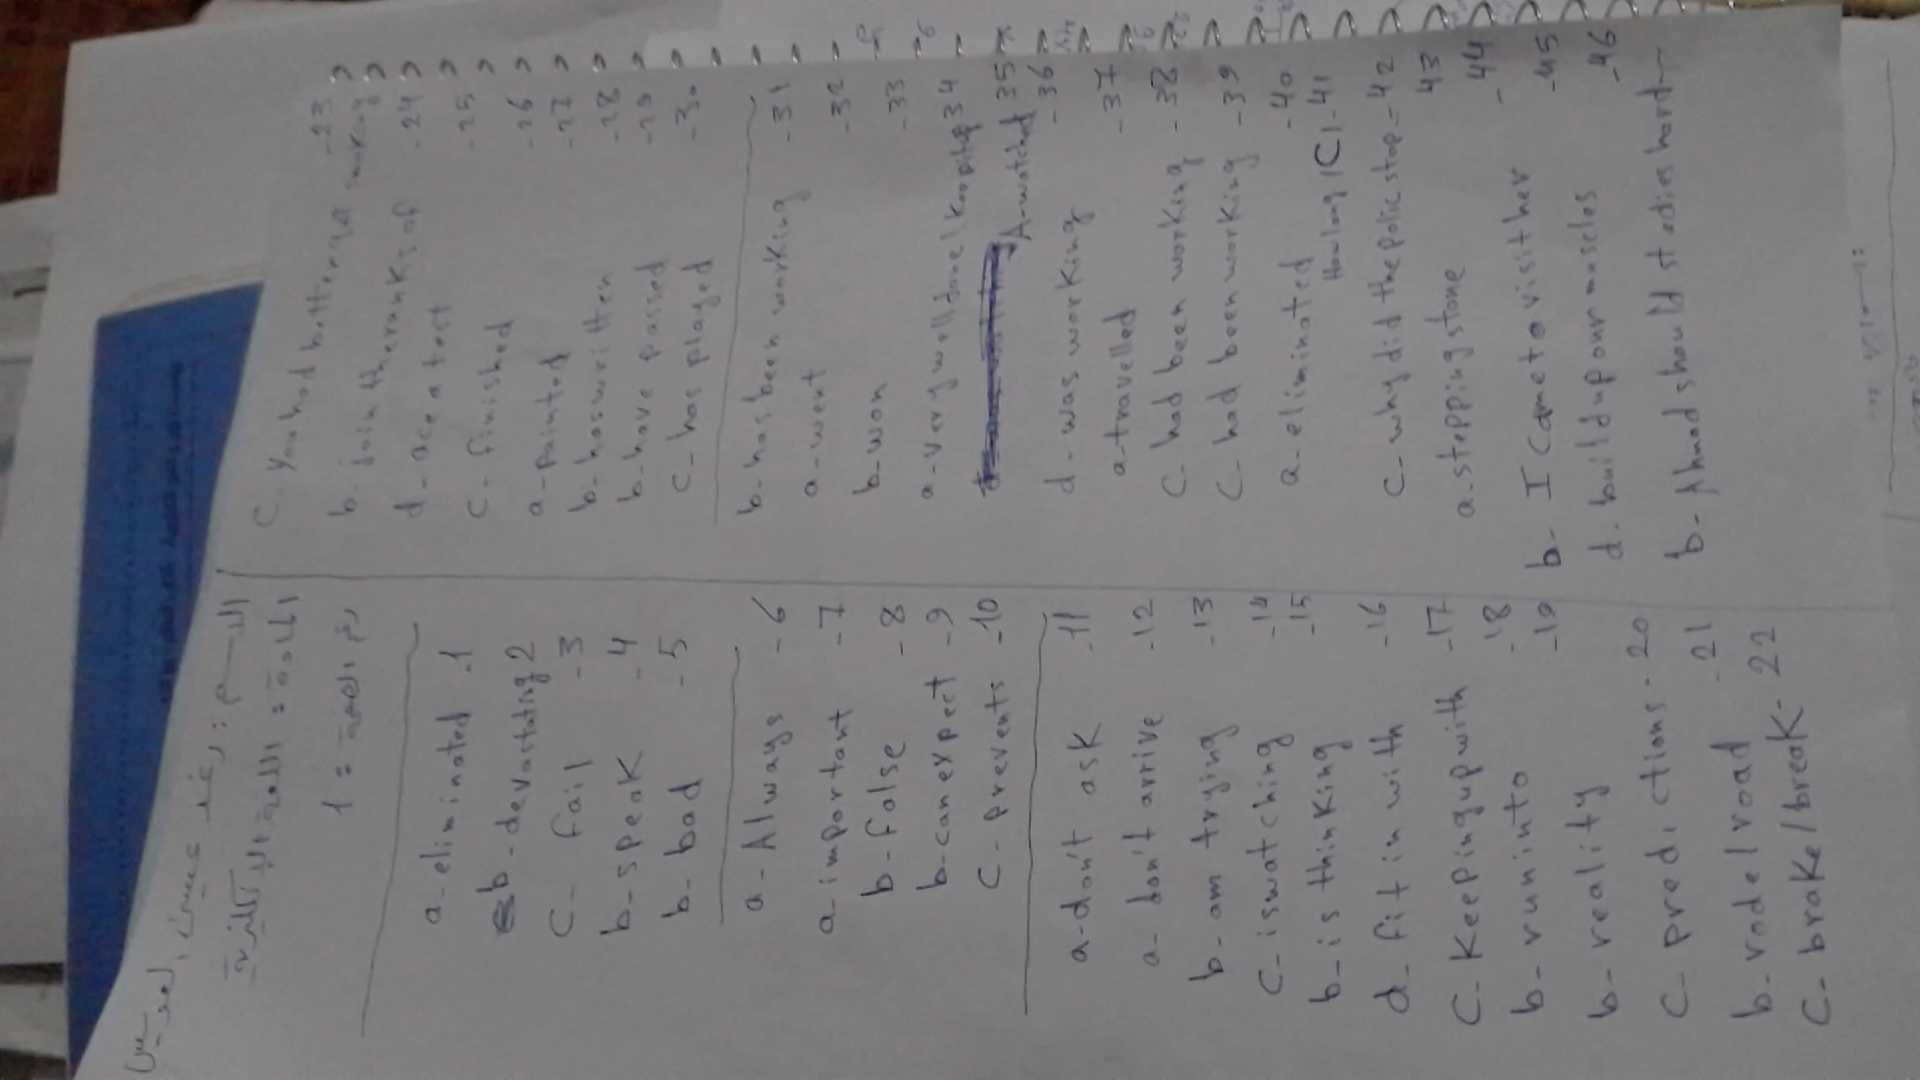 المادة : اللغة الإنكليزية
رقم الصفحة : 1
a-eliminated -1
b-devastating 2
C- fail -3
b-speak -4
b-bad -5
a-Always -6
a-important -7
b-false -8
b-can expect -9
C-prevents -10
a-don't ask -11
a-don't arrive -12
b-am trying -13
C-is watching -14
b-is thinking -15
d-fit in with -16
C-Keeping up with -17
b-run into -18
b-reality -19
C-predictions -20
b-rode/road -21
C-brake/break -22
-23
b-join the ranks of -24
d-ace a test -25
C-finished -26
a-painted -27
b-has written -28
b-have passed -29
C-has played -30
b-has been working -31
a-went -32
b-won -33
34
A-watched 35
d-was working -36
a-travelled -37
C-had been working -38
C-had been working -39
a-eliminated -40
How long /C/ -41
C-why did the polic stop -42
a.stepping stone 43
b-I came to visit her -44
d.build up your muscles -45
b-Ahmad should studies hard -46